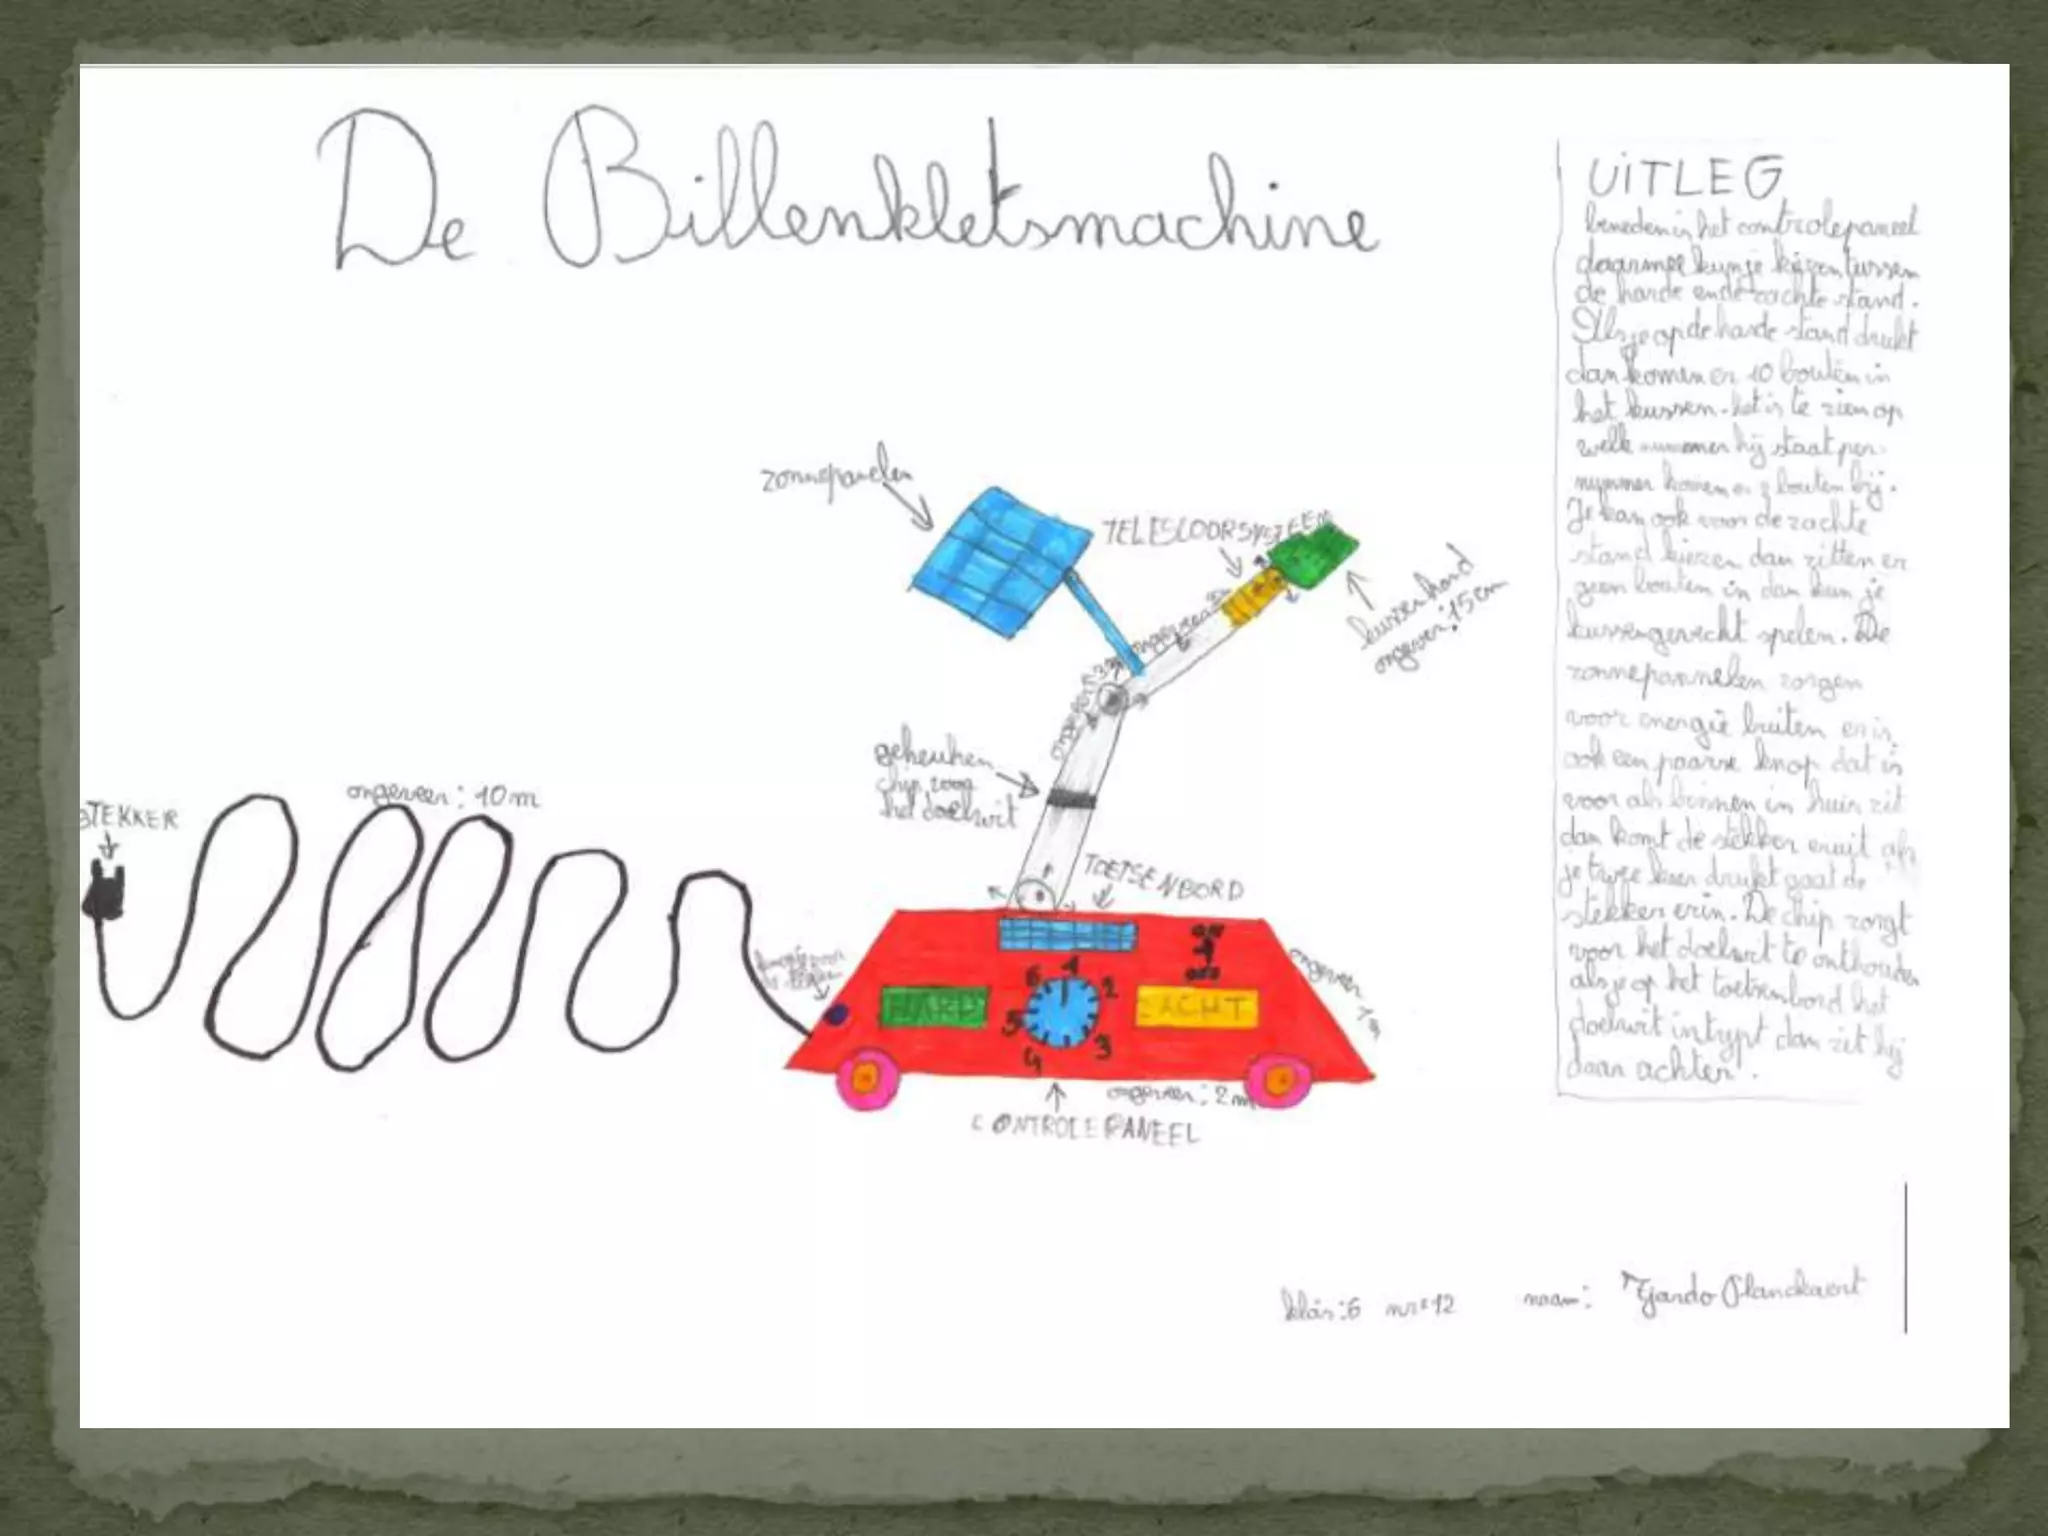 De Billenkletsmachine
UiTLEG
beneden is het controlepaneel
daarmee kun je kiezen tussen
de harde en de zachte stand.
Als je op de harde stand drukt
dan komen er 10 bouten in
het kussen. het is te zien op
welk nummer hij staat per
nummer komen er 2 bouten bij.
Je kan ook voor de zachte
stand kiezen dan zitten er
geen bouten in dan kun je
kussengevecht spelen. De
zonnepannelen zorgen
voor energie buiten er is
ook een paarse knop dat is
voor als binnen in huis zit
dan komt de stekker eruit als
je twee keer drukt gaat de
stekker erin. De chip zorgt
voor het doelwit te onthouden
als je op het toetsenbord het
doelwit intypt dan zit hij
daar achter.
zonnepanelen
TELESCOORSYSTEEM
kussenhand
ongeveer: 15cm
ongeveer
ongeveer
geheuhen
chip voor
het doelwit
STEKKER
ongeveer: 10m
TOETSENBORD
ongeveer 1m
HARD
6 1 2 3 4 5
ZACHT
ongeveer: 2m
CONTROLEPANEEL
klas: 6 nr: 12 naam: Tjardo Planckaert